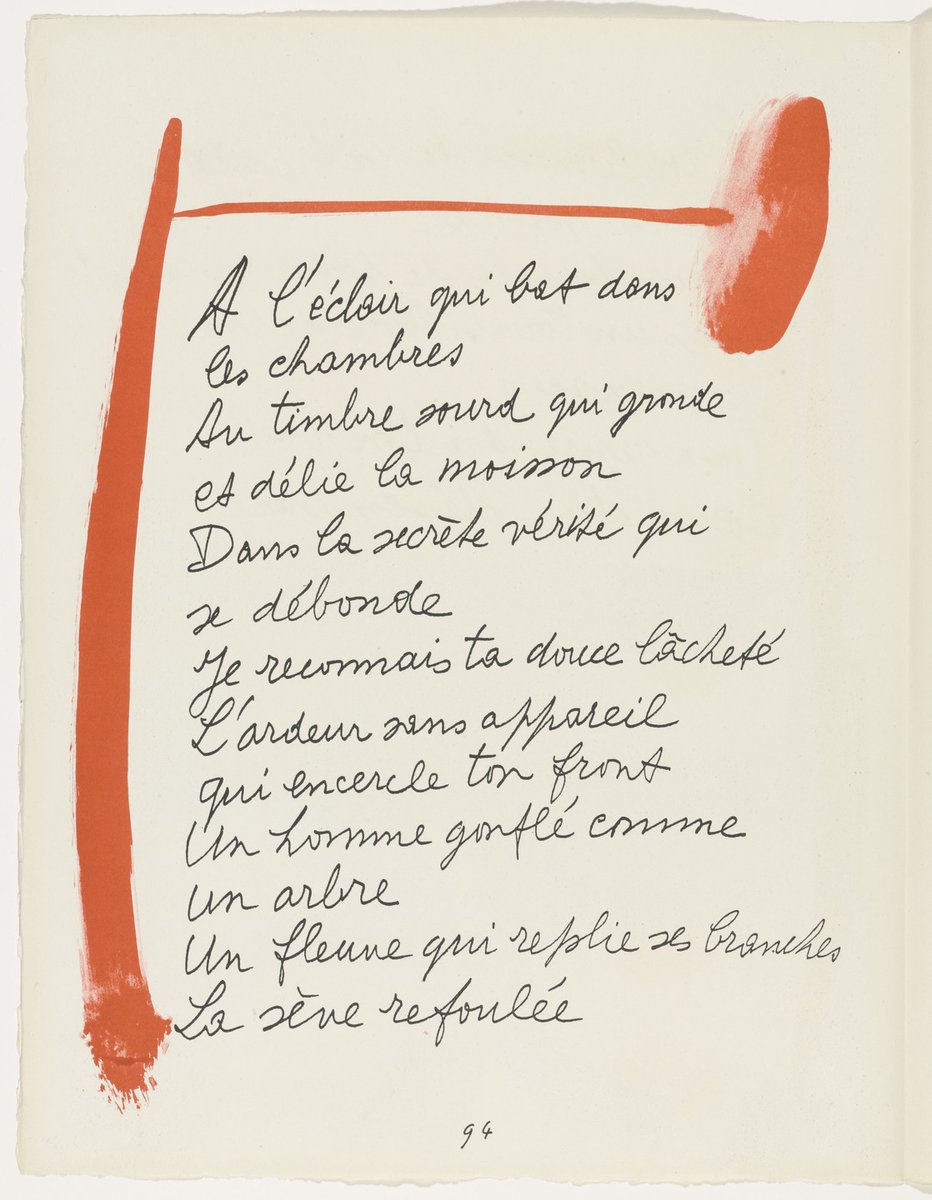 A l'éclair qui bat dans
les chambres
Au timbre sourd qui gronde
et délie la moisson
Dans la secrète vérité qui
se débonde
Je reconnais ta douce lâcheté
L'ardeur sans appareil
qui encercle ton front
Un homme gonflé comme
un arbre
Un fleuve qui replie ses branches
La sève refoulée
94